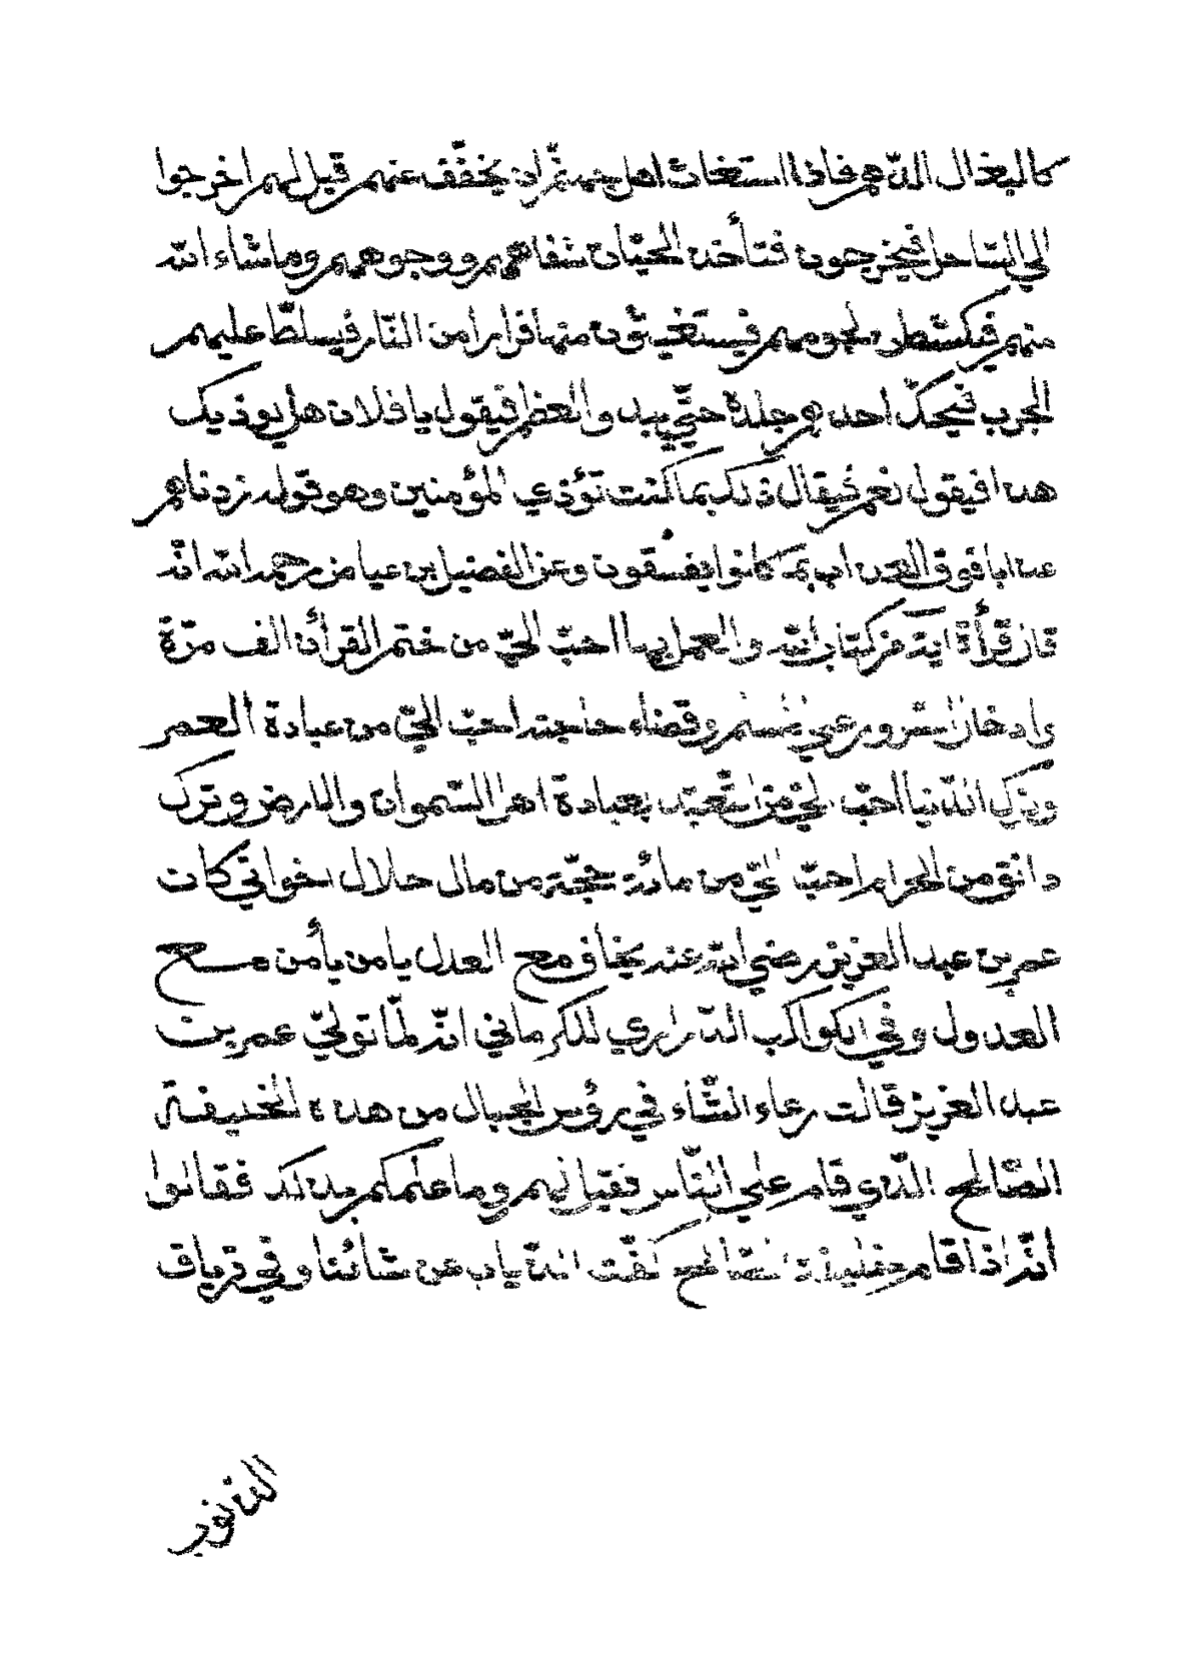 كالبغال الدّهم فاذا استغاث اهل جهنّم ان يخفّف عنهم قيل لهم اخرجوا
الي السّاحل فيخرجون فتأخذ الحيّات شفاههم ووجوههم وما شاء الله
منهم فيكشط لحومهم فيستغيثون منها فرارا من النّار فيسلّط عليهم
الجرب فيحكّ احدهم جلدة حتّي يبدو العظم فيقول يا فلان هل يوذيك
هذا فيقول نعم فيقال ذلك بما كنت تؤذي المؤمنين وهو قوله زدناهم
عذابا فوق العذاب بما كانوا يفسقون وعن الفضيل بن عياض رحمه الله انّه
قال قرأة اية من كتاب الله والعمل بها احبّ اليّ من ختم القرأن الف مرّة
وادخال السّرور علي مسلم وقضاء حاجته احبّ اليّ من عبادة العمر
وترك الدّنيا احبّ اليّ من التّعبّد بعبادة اهل السّموات والارض وترك
دانق من الحرام احبّ اليّ من مائة حجّة من مال حلال اخواني كان
عمر بن عبد العزيز رضي الله عنه يخاف مع العدل يا من يأمن مع
العدول وفي الكواكب الدّراري للكرماني انّه لمّا تولّي عمر بن
عبد العزيز قالت رعاء الشّاء في رؤس الجبال من هذه الخليفة
الصّالح الّذي قام علي النّاس فقيل لهم وما علمكم بذلك فقالوا
انّه اذا قام خليفة صّالح كفّت الذّياب عن شائنا وفي ترياق
الذنوب